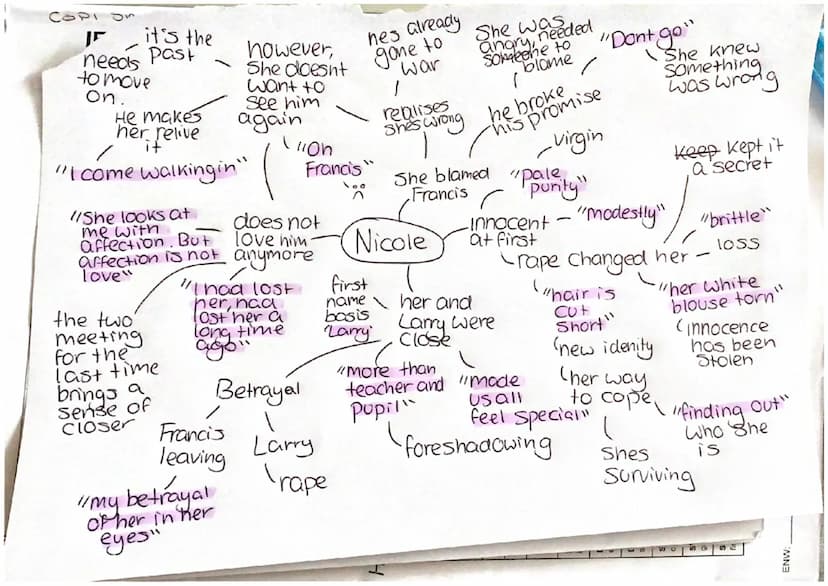 Nicole
She blamed
Francis
realises
shes wrong
hes already
gone to
war
he broke
his promise
She was
angry, needed
someone to
blame
"Dont go"
She knew
something
was wrong
innocent
at first
"pale
purity"
virgin
"modestly"
rape changed her
keep kept it
a secret
"brittle"
loss
"her white
blouse torn"
innocence
has been
stolen
"hair is
cut
short"
new idenity
her way
to cope
"finding out"
who she
is
shes
surviving
her and
Larry were
close
first
name
basis
'Larry'
"more than
teacher and
pupil"
foreshadowing
"made
us all
feel special"
Betrayal
Francis
leaving
"my betrayal
of her in her
eyes"
Larry
rape
does not
love him
anymore
"She looks at
me with
affection. But
affection is not
love"
"I had lost
her, had
lost her a
long time
ago"
the two
meeting
for the
last time
brings a
sense of
closer
however,
she doesnt
want to
see him
again
"Oh
Francis"
it's the
past
needs
to move
on.
He makes
her relive
it
"I come walking in"
ENW: